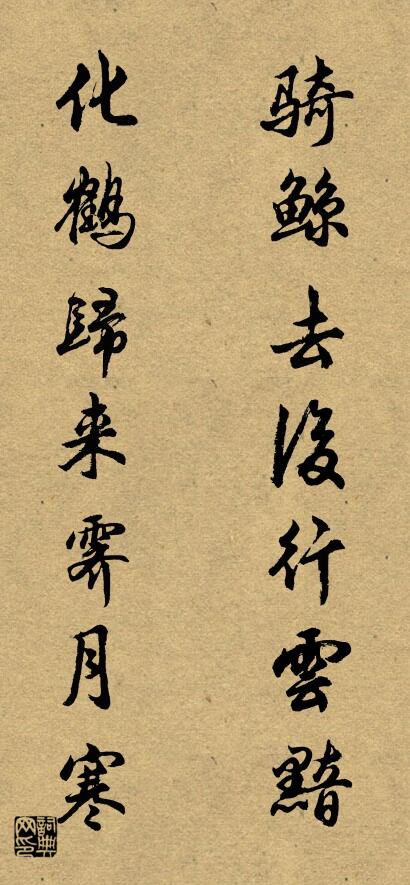 騎鯨去後行雲黯
化鶴歸来霽月寒
詞典网印